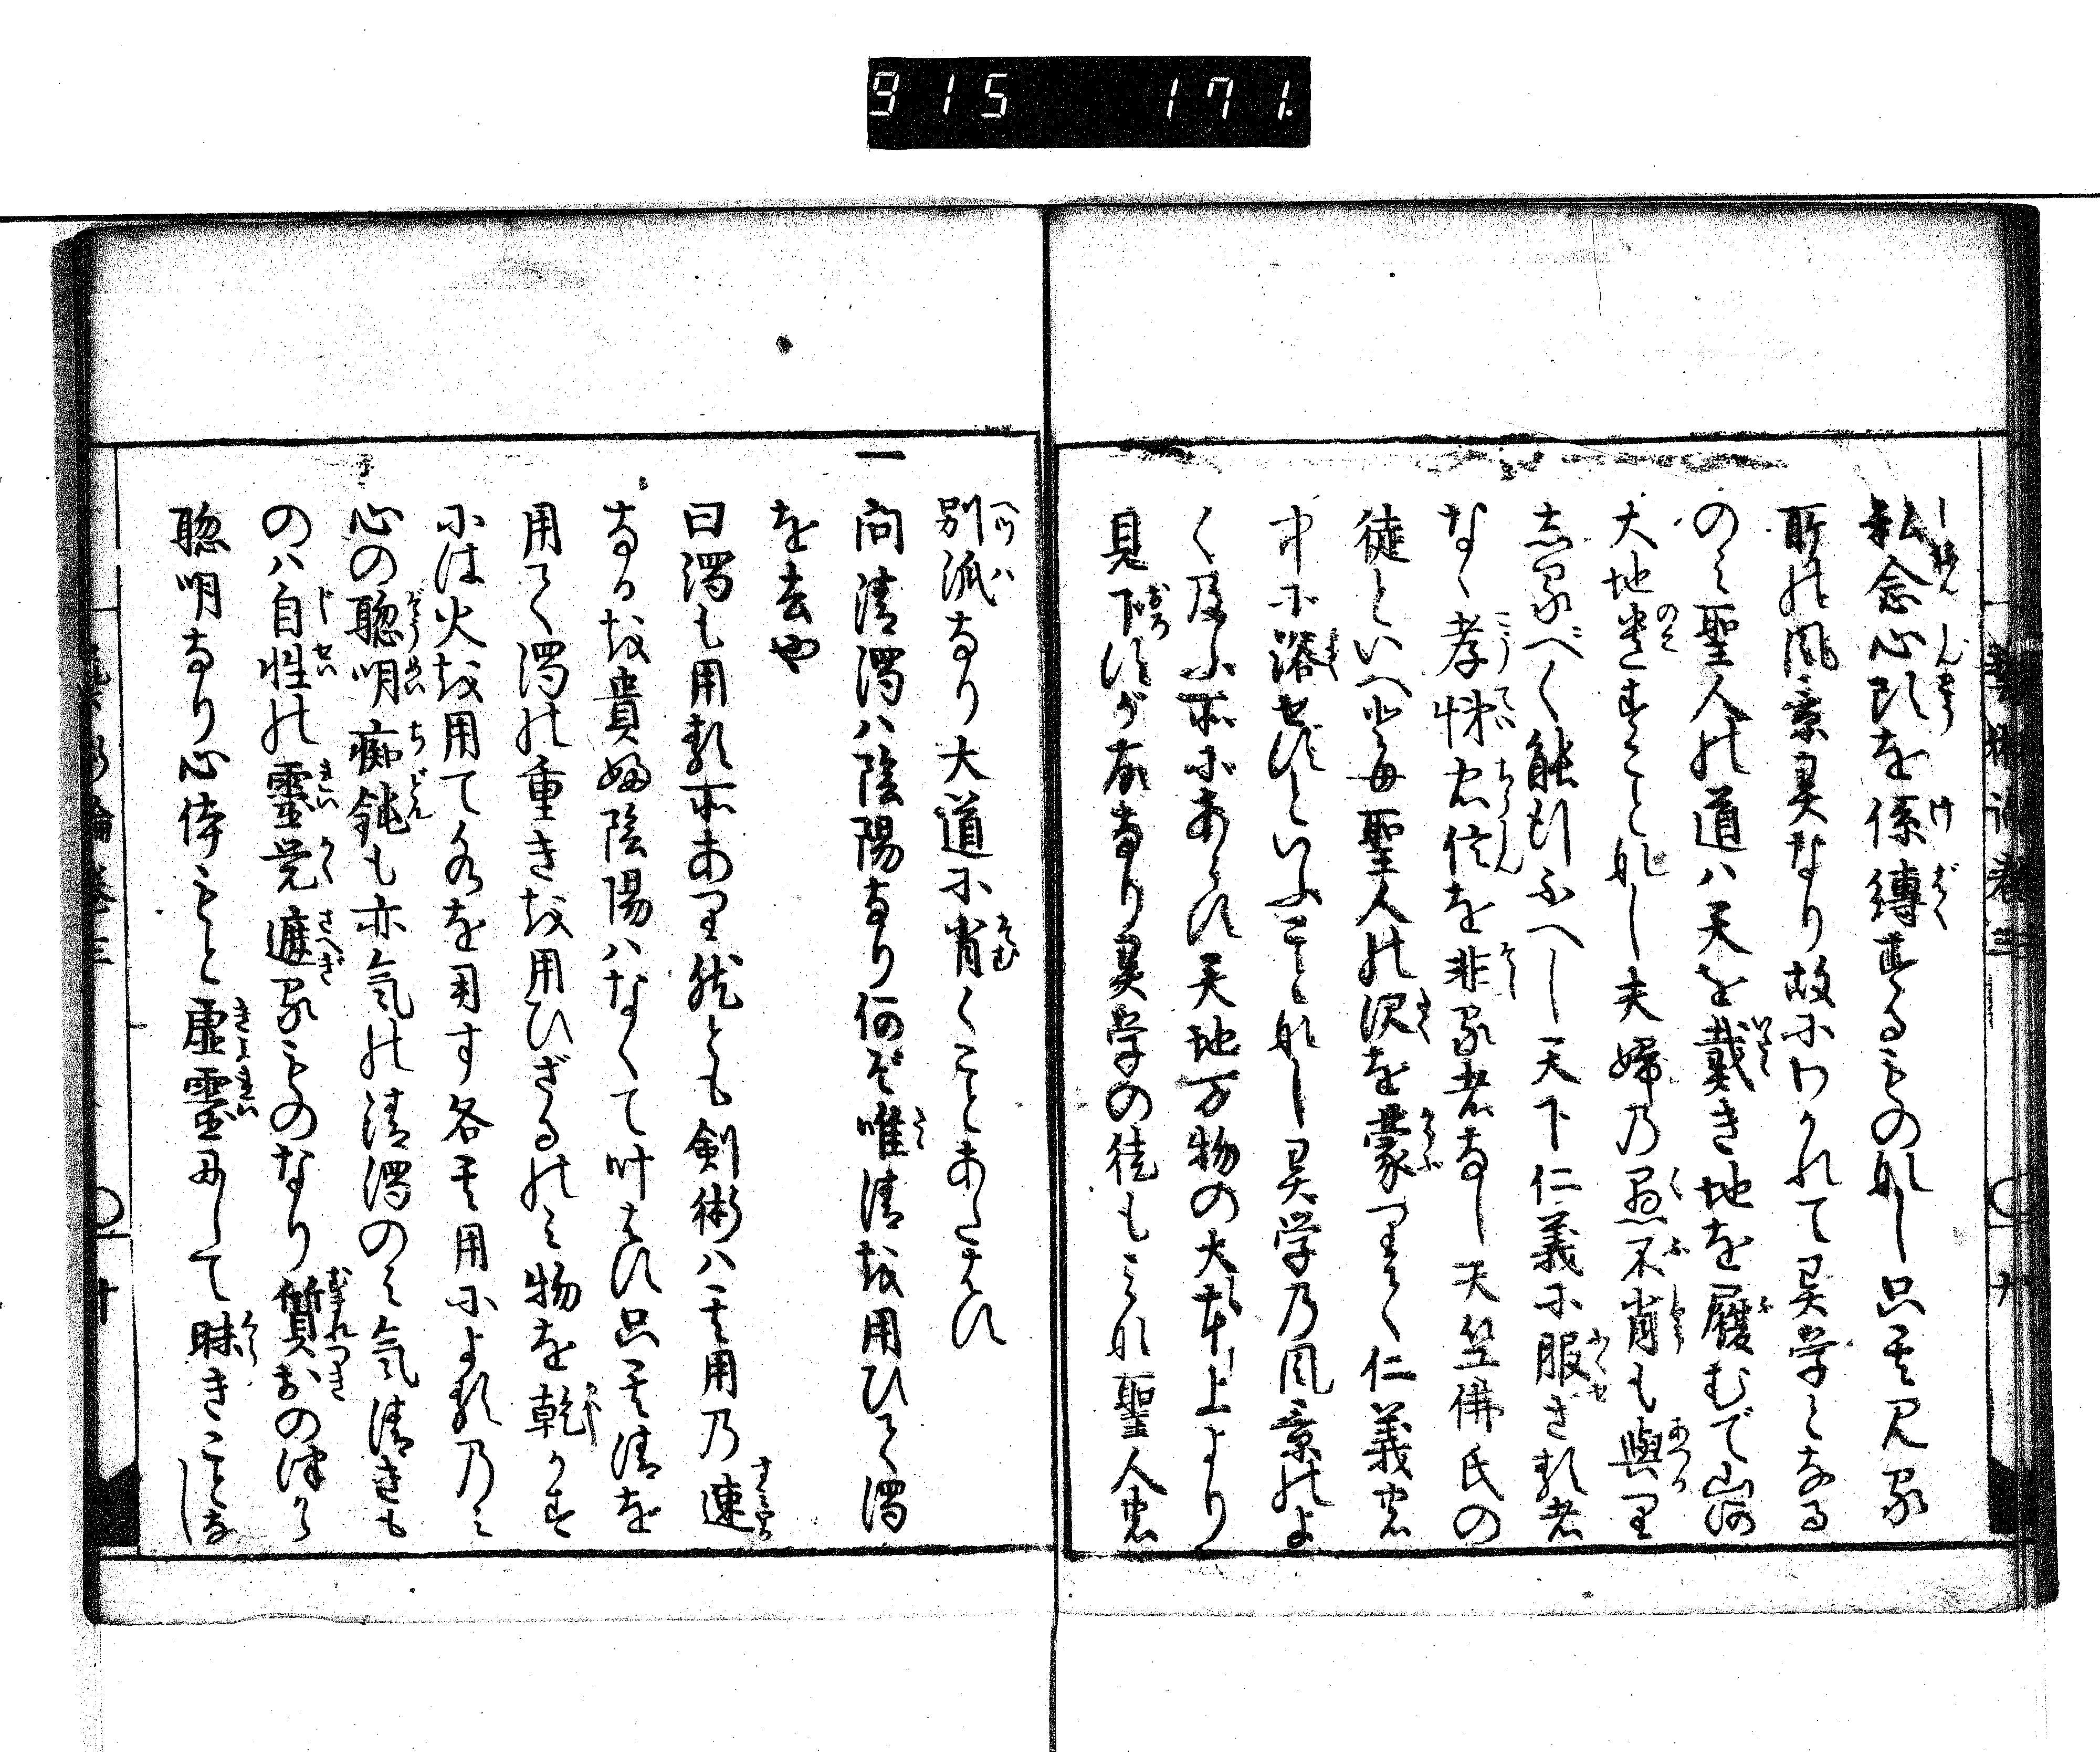 915 171.
私念心頭を係縛するもの也し只其見る
所の風景異なり故にわかれて異学となる
のミ聖人の道ハ天を戴き地を履むで山河
大地遺すこと也し夫婦乃愚不肖も與り
志るべく能行ふへし天下仁義に服ざる者
なく孝悌忠信を非る者なし天竺佛氏の
徒といへども聖人の沢を蒙りて仁義忠
中に浴せずといふこと也し異学乃風景のよ
く及ふ所にあらず天地万物の大本上より
見下すが故なり異学の徒もこれ聖人忠
別派なり大道に背くことあたはず
一問清濁ハ陰陽なり何ぞ唯清を用ひて濁
を去や
曰濁も用る所あり然とも剣術ハ其用乃速
なるを貴ぶ陰陽ハなくて叶はず只其清を
用て濁の重きを用ひざるのミ物を乾かす
には火を用て水を用す各其用による乃ミ
心の聡明痴鈍も亦気の清濁のミ気清きも
のハ自性の霊覚遮るものなり質おのづから
聡明なり心体もと虚霊にして昧きことな
し
藝術論巻三
十